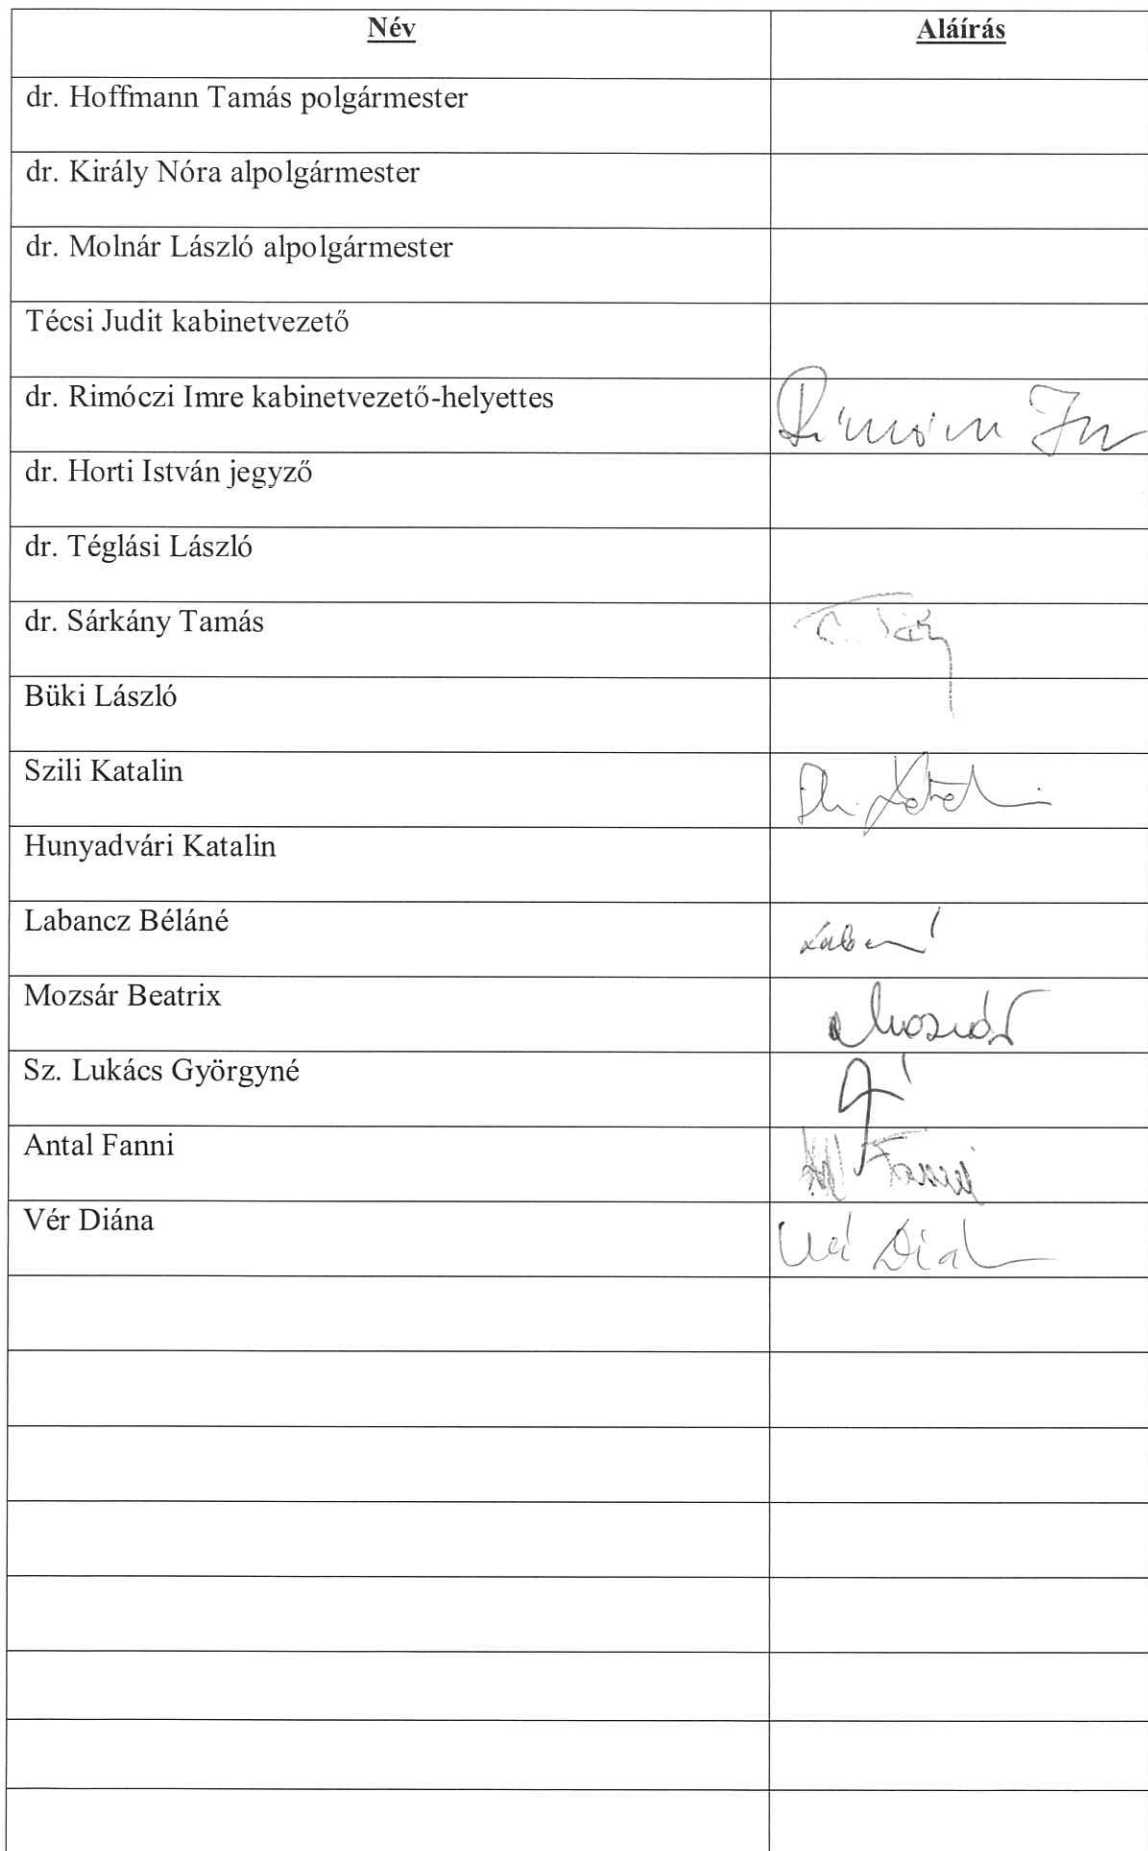 Név Aláírás
dr. Hoffmann Tamás polgármester
dr. Király Nóra alpolgármester
dr. Molnár László alpolgármester
Técsi Judit kabinetvezető
dr. Rimóczi Imre kabinetvezető-helyettes
dr. Horti István jegyző
dr. Téglási László
dr. Sárkány Tamás
Büki László
Szili Katalin
Hunyadvári Katalin
Labancz Béláné
Mozsár Beatrix
Sz. Lukács Györgyné
Antal Fanni Fanni
Vér Diána